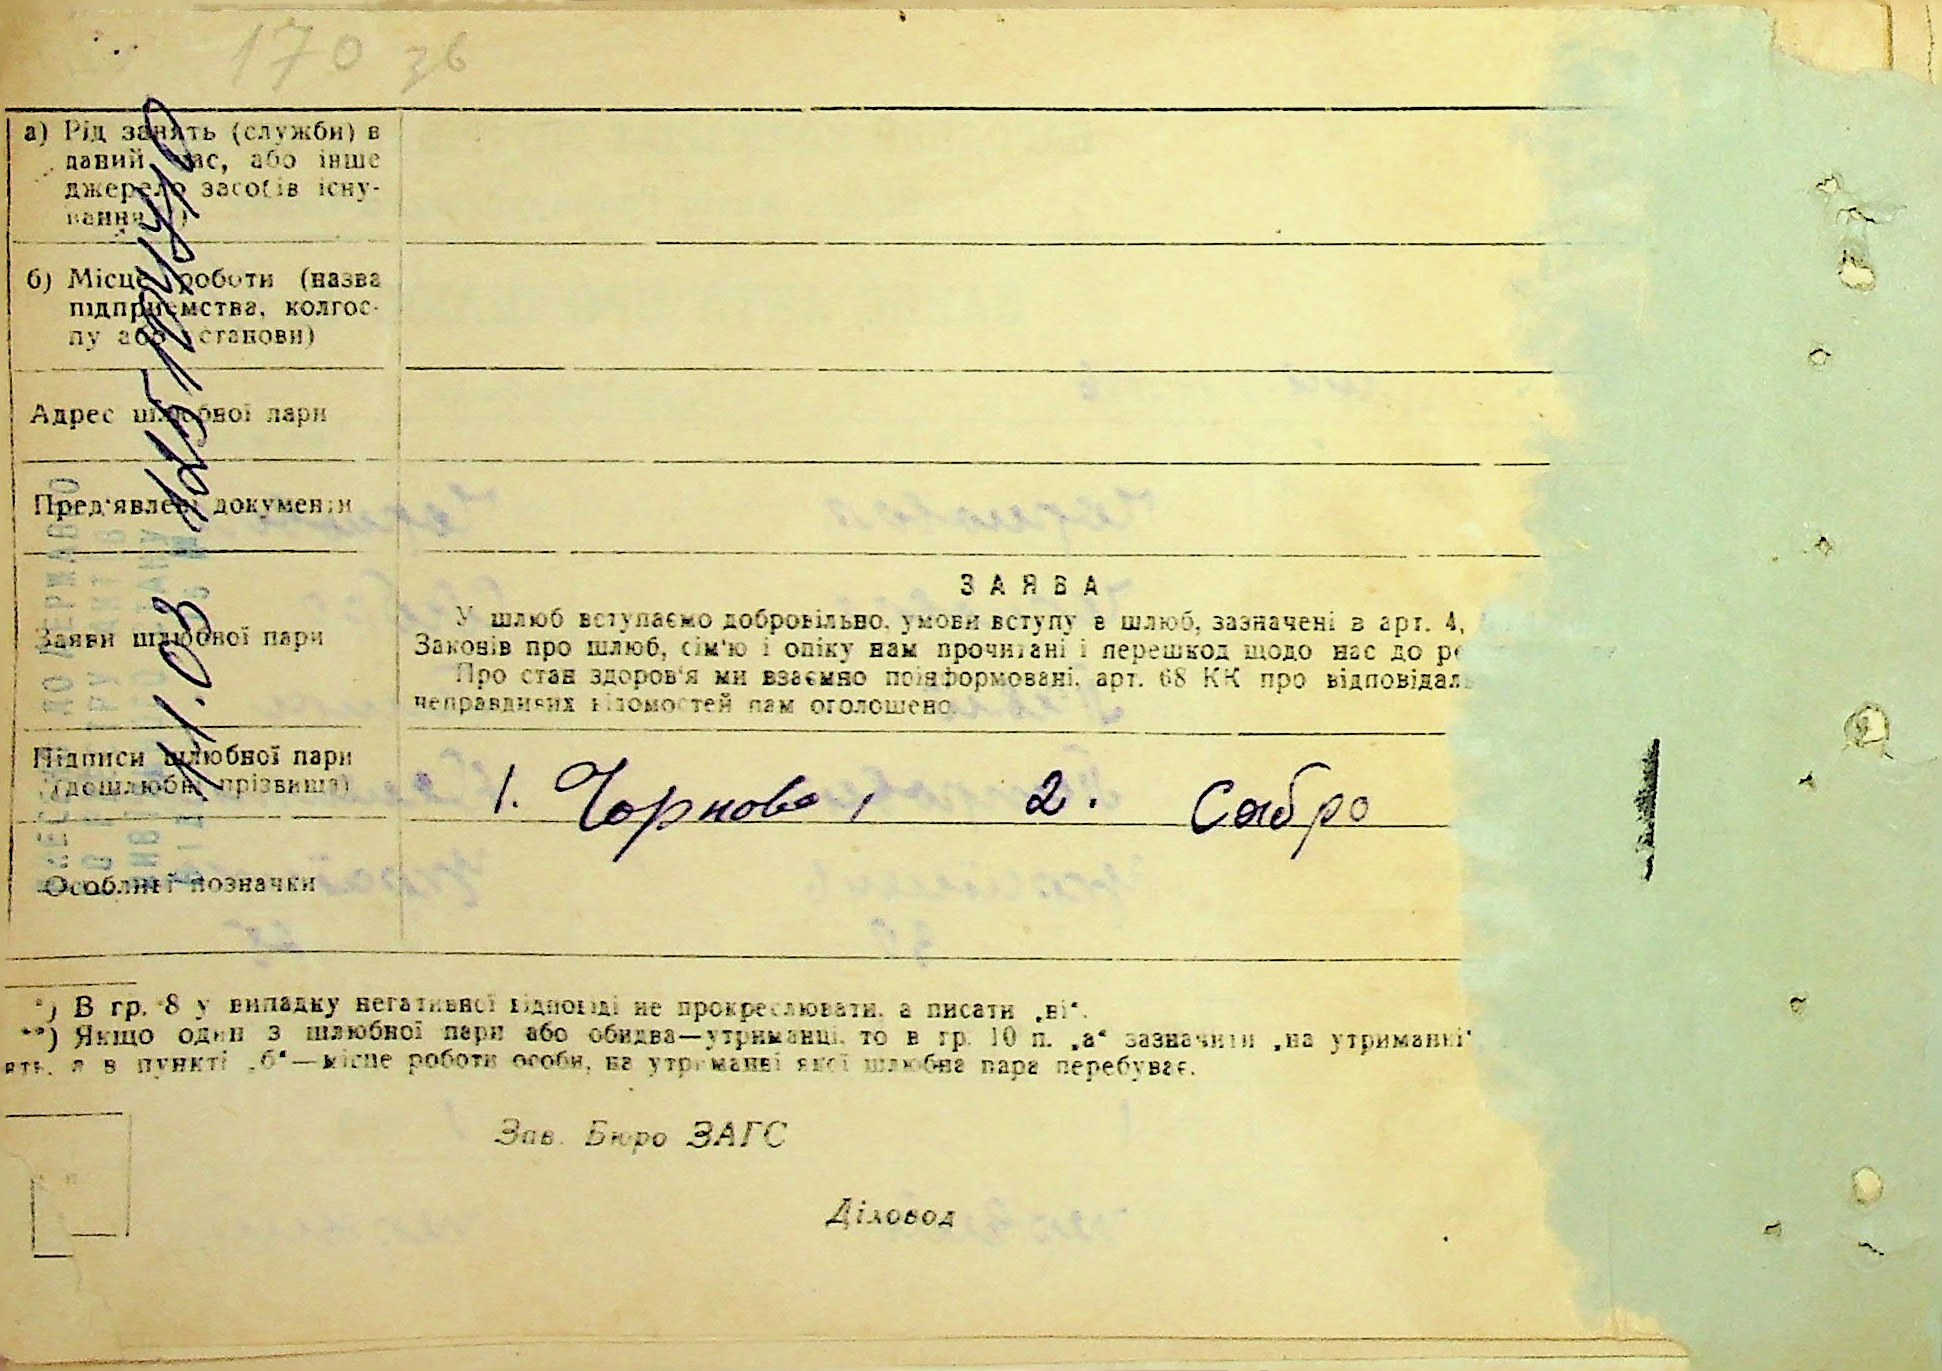 170 зв
а) Рід занять (служби) в
даний час, або інше
джерело засобів існу-
вання
б) Місце роботи (назва
підприємства, колгос-
пу або установи)
Адрес шлюбної пари
Пред'явлені документи
Заяви шлюбної пари
ЗАЯВА
У шлюб вступаємо добровільно, умови вступу в шлюб, зазначені в арт. 4,
Законів про шлюб, сім'ю і опіку нам прочитані і перешкод щодо нас до
Про стан здоров'я ми взаємно поінформовані, арт. 68 КК про
неправдивих відомостей нам оголошено.
Підписи шлюбної пари
(дошлюбні прізвища)
1. Чорнова, 2. Сябро
Особливі позначки
*) В гр. 8 у випадку негативної відповіді не прокреслювати, а писати „ні“.
**) Якщо один з шлюбної пари або обидва—утриманці, то в гр. 10 п. „а“ зазначити „на утриманні“
а в пункті „б“—місце роботи особи, на утриманні якої шлюбна пара перебуває.
Зав. Бюро ЗАГС
Діловод
11.03